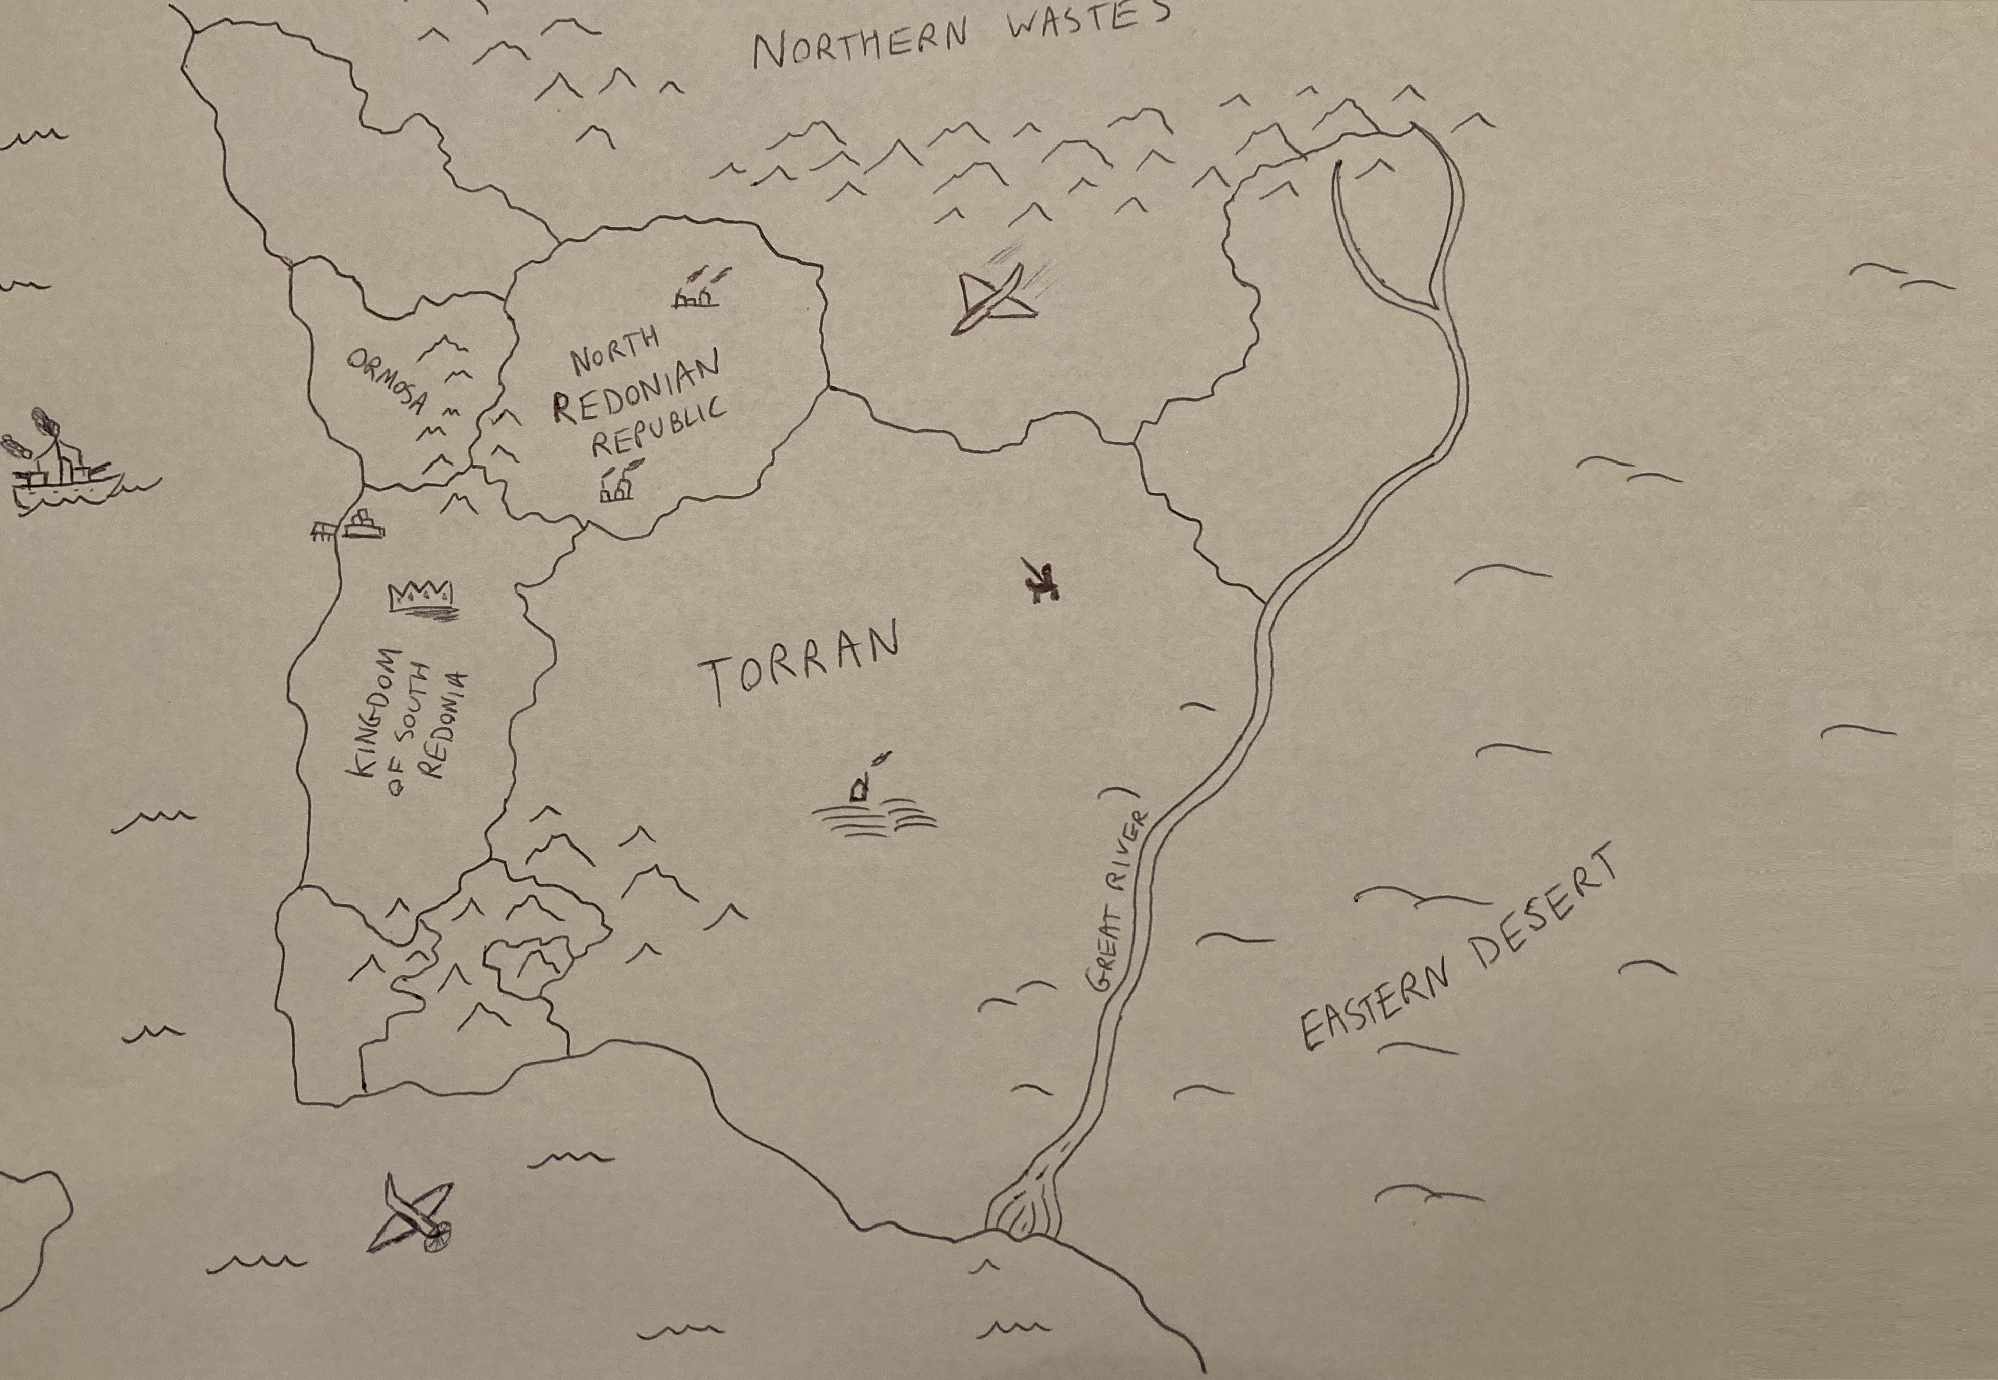 NORTHERN WASTES
ORMOSA
NORTH
REDONIAN
REPUBLIC
KINGDOM
OF SOUTH
REDONIA
TORRAN
GREAT RIVER
EASTERN DESERT